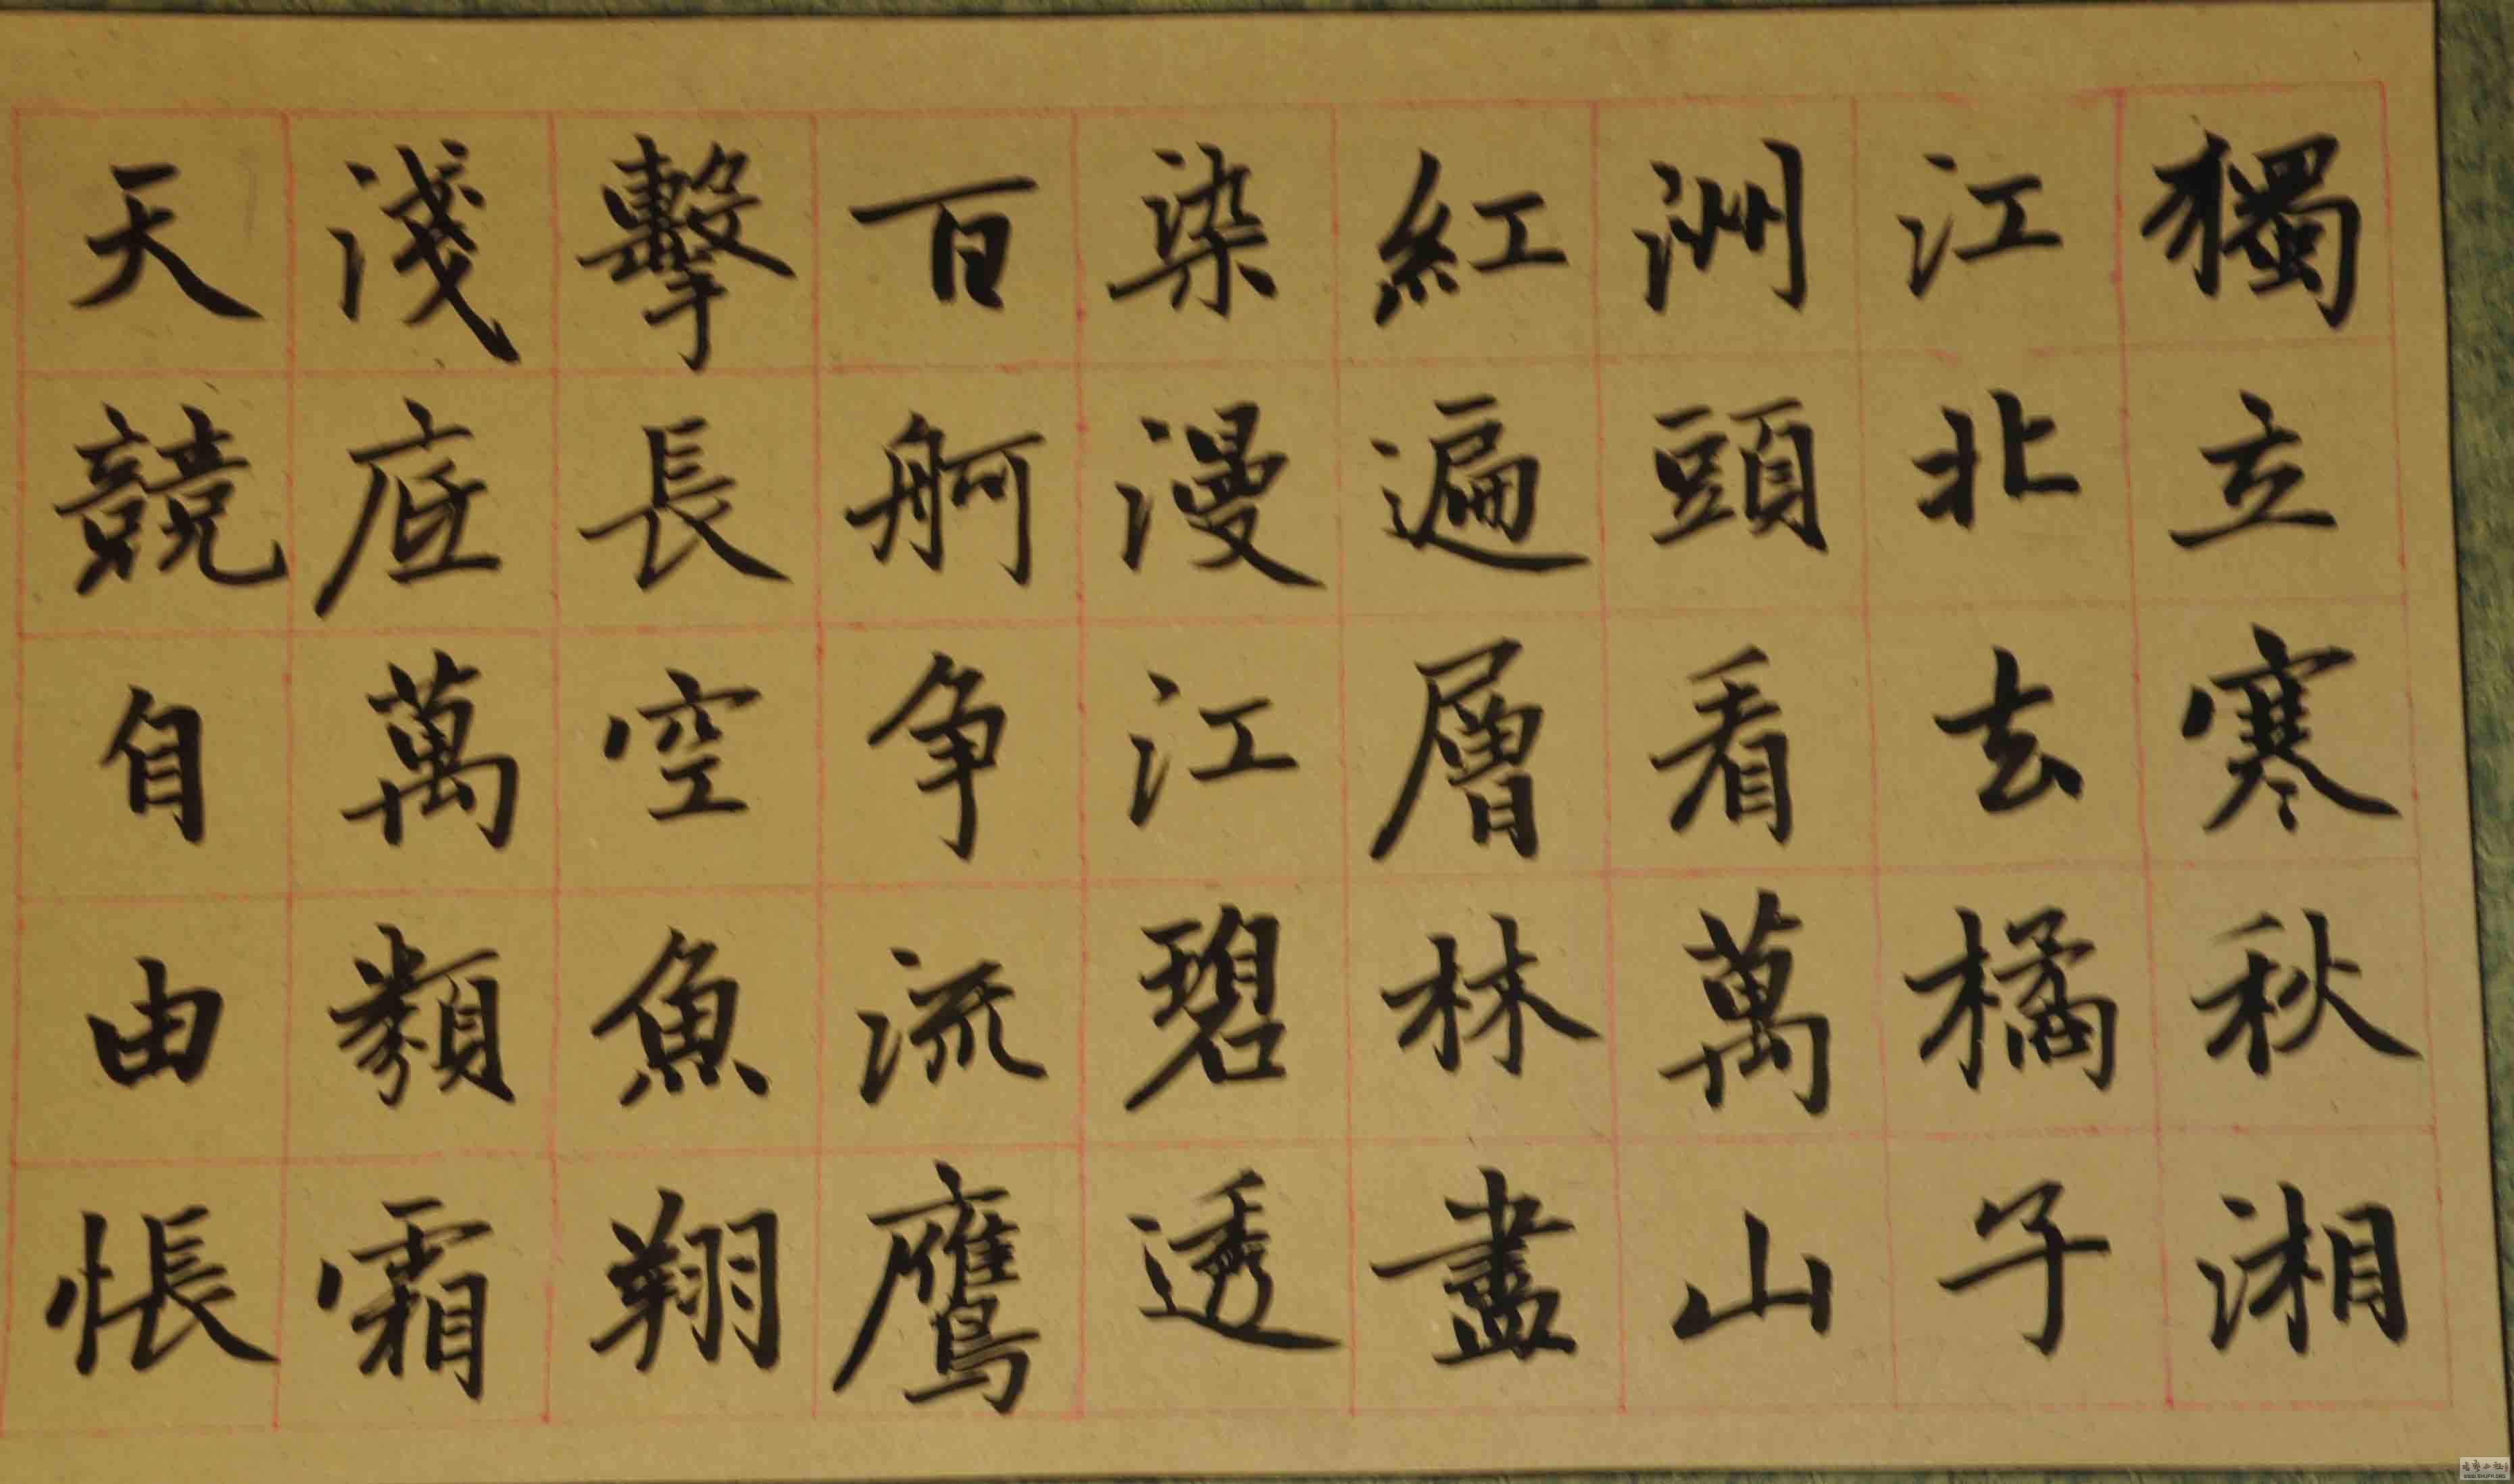 獨立寒秋湘
江北去橘子
洲頭看萬山
紅遍層林盡
染漫江碧透
百舸争流鷹
擊長空魚翔
淺底萬類霜
天競自由悵